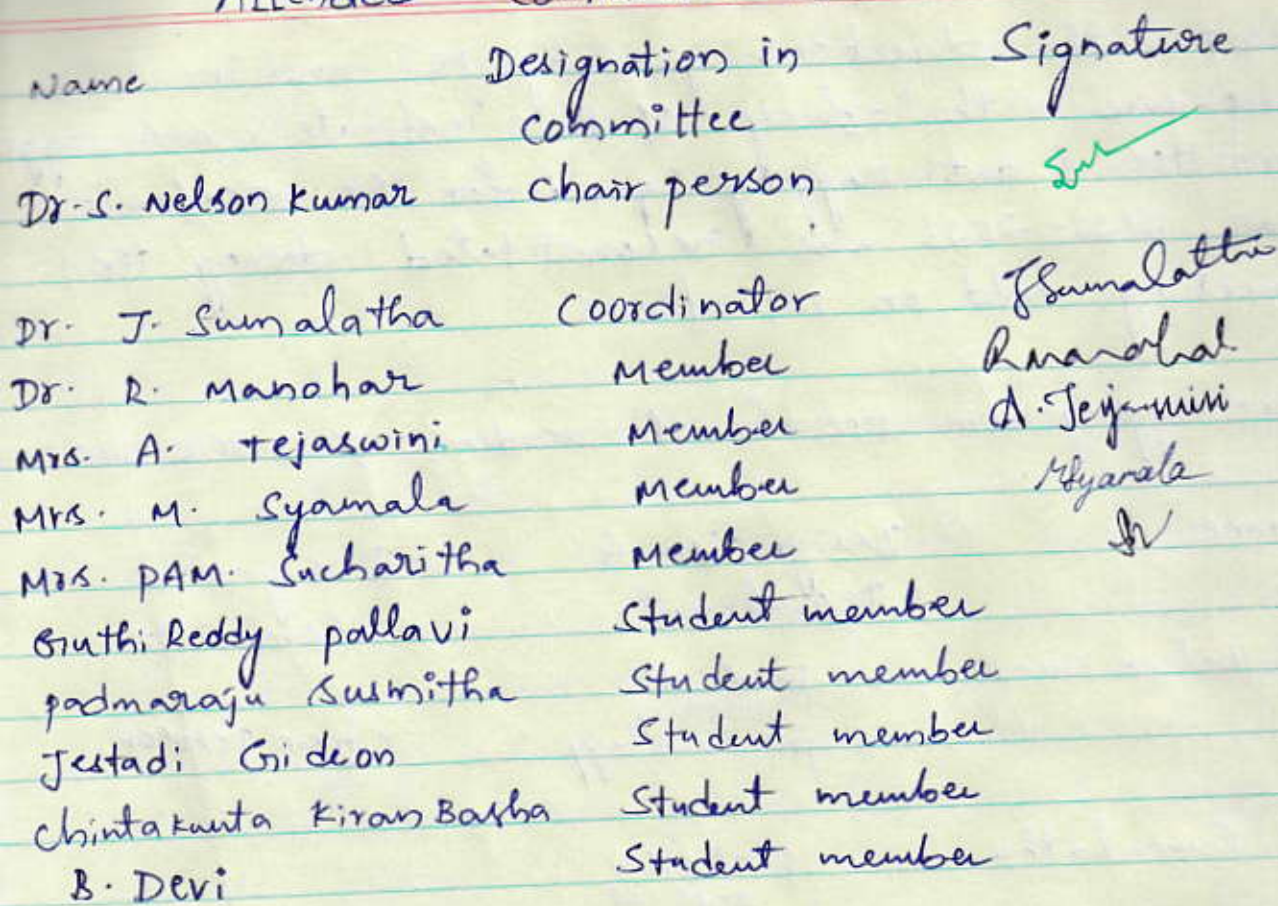 Name Designation in Signature
committee
Dr. S. Nelson Kumar Chair person
Dr. J. Sumalatha Coordinator JSumalatha
Dr. R. Manohar Member Rmanohar
Mrs. A. Tejaswini Member A. Tejaswini
Mrs. M. Syamala Member MSyamala
Mrs. PAM. Sucharitha Member
Guthi Reddy pallavi Student member
padmaraju Susmitha Student member
Jestadi Gideon Student member
Chintakunta Kiran Basha Student member
B. Devi Student member